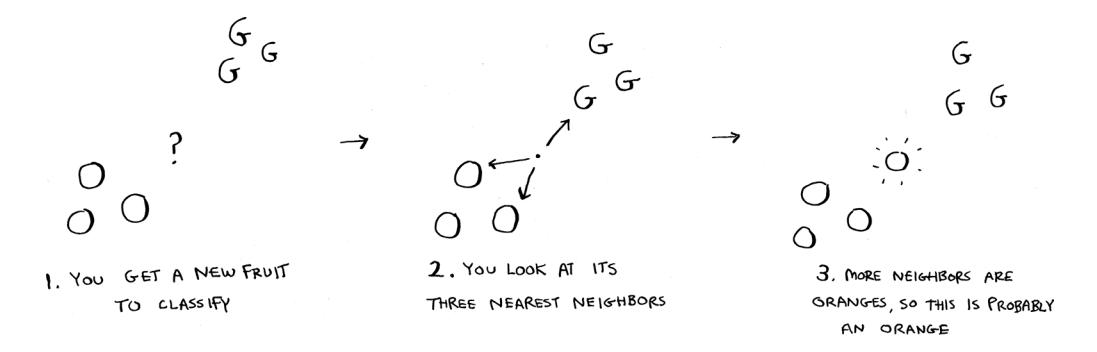 G
G
G
?
O
O
O
1. YOU GET A NEW FRUIT
TO CLASSIFY
G
G
G
O
O
O
2. YOU LOOK AT ITS
THREE NEAREST NEIGHBORS
G
G
G
O
O
O
O
3. MORE NEIGHBORS ARE
ORANGES, SO THIS IS PROBABLY
AN ORANGE